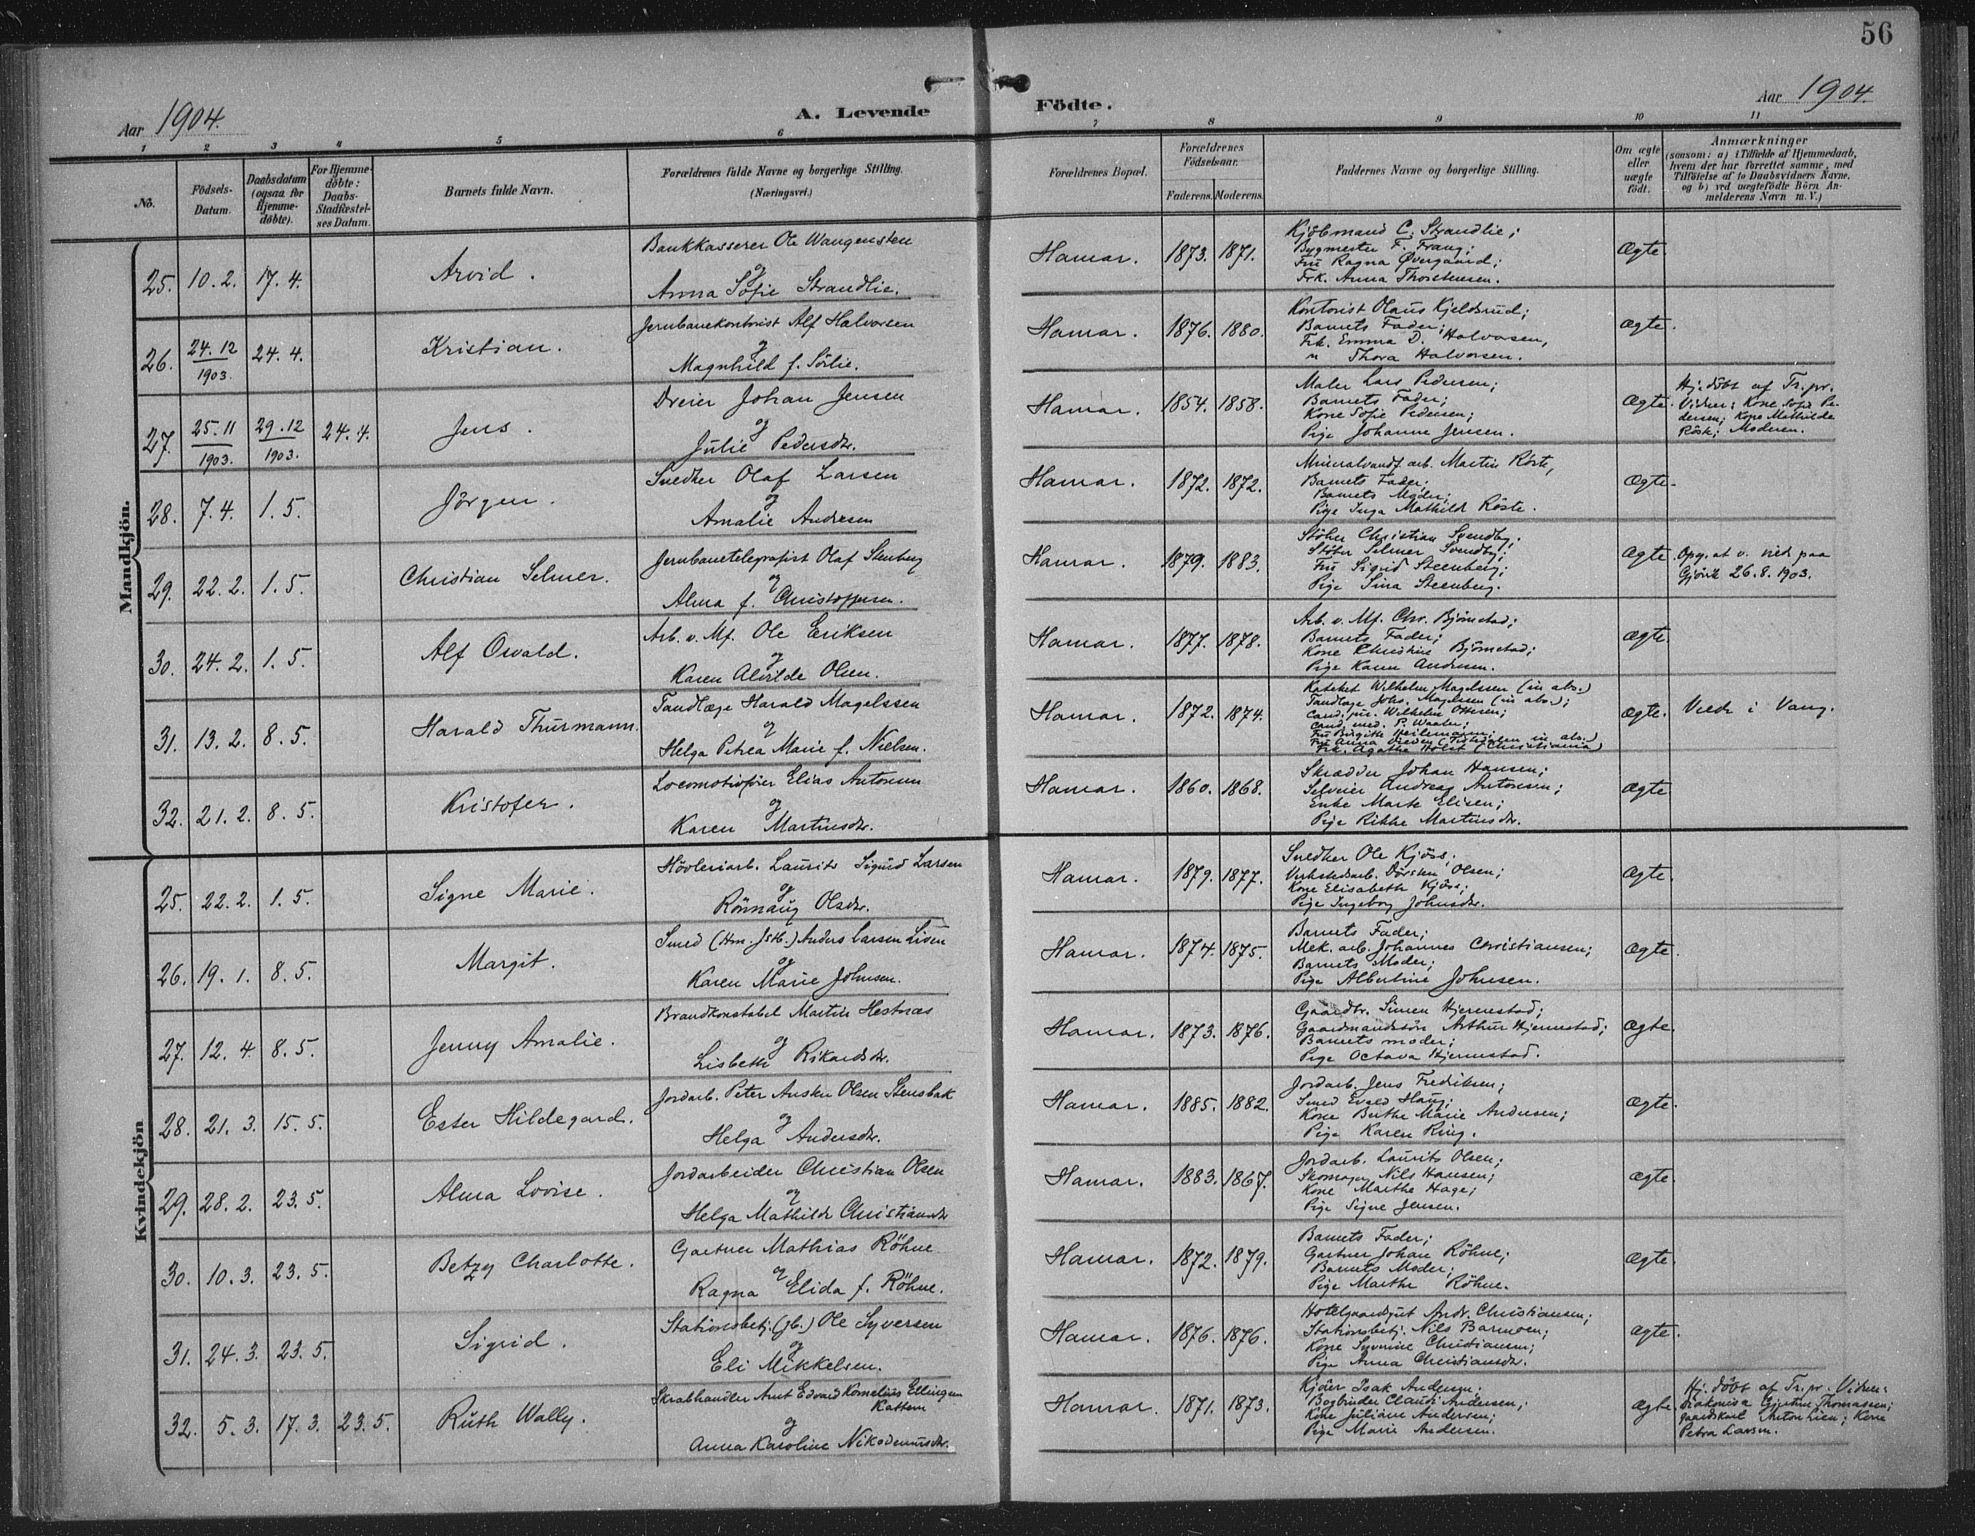 56
Aar 1904.
A. Levende Födte.
Aar 1904.
1 2 3 4 5 6 7 8 9 10 11
No.
Födsels-Datum.
Daabsdatum (ogsaa for Hjemme-döbte).
For Hjemme-döbte: Daabs-Stadfæstel-ses Datum.
Barnets fulde Navn.
Forældrenes fulde Navne og borgerlige Stilling. (Næringsvei.)
Forældrenes Bopæl.
Forældrenes Födselsaar.
Faderens. Moderens.
Faddernes Navne og borgerlige Stilling.
Om ægte eller uægte födt.
Anmærkninger
(saasom: a) i Tilfælde af Hjemmedaab, hvem der har forrettet samme, med Tilföielse af to Daabsvidners Navne, og b) ved uægtefödte Börn An-melderens Navn m. V.)
Mandkjön.
25. 10. 2. 17. 4. Arvid.
Bankkasserer Ole Wangensten
og
Anna Sofie Strandlie.
Hamar. 1873. 1871.
Kjöbmand C. Strandlie;
Bygmester F. Frang;
Fru Ragna Övergaard;
Frk. Anna Thorstensen.
Ægte.
26. 24. 12 1903. 24. 4. Kristian.
Jernbanekontorist Alf Halvorsen
og
Magnhild f. Sörlie.
Hamar. 1876. 1880.
Kontorist Olaus Kjeldsrud;
Barnets Fader;
Frk. Emma D. Halvorsen,
" Thora Halvorsen.
Ægte.
27. 25. 11 1903. 29. 12 1903. 24. 4. Jens.
Dreier Johan Jensen
og
Julie Pedersdr.
Hamar. 1854. 1858.
Maler Lars Pedersen;
Barnets Fader;
Kone Sofie Pedersen;
Pige Johanne Jensen.
Ægte.
Hj. döbt af Tr. pr.
Vidner: Kone Sofie Pe-
dersen; Kone Mathilde
Röste; Moderen.
28. 7. 4. 1. 5. Jörgen.
Snedker Olaf Larsen
og
Amalie Andresen
Hamar. 1872. 1872.
Mineralvandf. arb. Martin Röste,
Barnets Fader;
Barnets Moder;
Pige Inga Mathilde Röste.
Ægte.
29. 22. 2. 1. 5. Christian Selmer.
Jernbanetelegrafist Olaf Stenberg
og
Alma f. Christoffersen.
Hamar. 1879. 1883.
Stöber Christian Svendby;
Stöber Selmer Svendby;
Fru Sigrid Steenberg;
Pige Sina Steenberg.
Ægte.
Opg. at v. viet paa
Gjövik 26. 8. 1903.
30. 24. 2. 1. 5. Alf Osvald.
Arb. v. Mf. Ole Eriksen
og
Karen Alvilde Olsen.
Hamar. 1877. 1878.
Arb. v. Mf. Chr. Björnstad;
Barnets Fader;
Kone Christine Björnstad;
Pige Karen Andersen.
Ægte.
31. 13. 2. 8. 5. Harald Thurmann.
Tandlæge Harald Magelssen
og
Helga Petrea Marie f. Nielsen.
Hamar. 1872. 1874.
Kateket Wilhelm Magelssen (in abs.)
Tandlæge Johs. Magelssen (in abs.);
Cand. jur. Wilhelm Ottesen;
Cand. med. P. Waaler;
Fru Birgitte Heilemann;
Frk. Agathe Holst (Christiania)
Ægte.
Viede i Vang.
32. 21. 2. 8. 5. Kristofer.
Locomotivförer Elias Antonsen
og
Karen Martinsdr.
Hamar. 1860. 1868.
Skrædder Johan Hansen;
Selveier Andreas Antonsen;
Enke Marte Elisen;
Pige Rikke Martinsdr.
Ægte
Kvindekjön
25. 22. 2. 1. 5. Signe Marie.
Hövleriarb. Laurits Sigurd Larsen
og
Rönnaug Olsdr.
Hamar. 1879. 1877.
Snedker Ole Kjöss;
Verkstedarb. Dörsten Olsen;
Kone Elisabeth Kjöss;
Pige Ingeborg Johnsdr.
Ægte.
26. 19. 1. 8. 5. Margit.
Smed (Hm. Jstb.) Anders Larsen Lien
og
Karen Marie Johnsen.
Hamar. 1874. 1875.
Barnets Fader;
Mek. arb. Johannes Christiansen;
Barnets Moder;
Pige Albertine Johnsen.
Ægte.
27. 12. 4 8. 5. Jenny Amalie.
Brandkonstabel Martin Hestnæs
og
Lisbeth Rikardsdr.
Hamar. 1873. 1876.
Gaardbr. Simen Hjemstad;
Gaardmandssön Arthur Hjemstad;
Barnets moder;
Pige Octava Hjemstad.
Ægte.
28. 21. 3. 15. 5. Ester Hildegard.
Jordarb. Peter Ansten Olsen Stensbak
og
Helga Andersdr.
Hamar. 1885. 1882.
Jordarb. Jens Fredriksen;
Smed Evald Haug;
Kone Berthe Marie Andersen;
Pige Karen Ring.
Ægte.
29. 28. 2. 23. 5. Alma Lovise.
Jordarbeider Christian Olsen
og
Helga Mathilde Christiansdr
Hamar. 1883. 1867.
Jordarb. Laurits Olsen;
Skomager Nils Hansen;
Kone Marthe Hage;
Pige Signe Jensen.
Ægte.
30. 10. 3. 23. 5. Betzy Charlotte.
Gartner Mathias Röhne
og
Ragna Elida f. Röhne.
Hamar. 1872. 1879.
Barnets Fader;
Gartner Johan Röhne;
Barnets Moder;
Pige Marthe Röhne.
Ægte.
31. 24. 3. 23. 5. Sigrid.
Stationsbetj. (jb.) Ole Syversen
og
Eli Mikkelsen.
Hamar. 1876. 1876.
Hotelgaardsgut Andr. Christiansen;
Stationsbetj. Nils Barmoen;
Kone Syverine Christiansen;
Pige Anna Christiansdr.
Ægte.
32. 5. 3. 17. 3. 23. 5. Ruth Wally.
Skrabhandler Arnt Edvard Kornelius Ellingsen
Kattem
og
Anna Karoline Nikodemusdr.
Hamar. 1871. 1873.
Kjörer Isak Andersen;
Bogbinder Claus Andersen;
Kone Juliane Andersen;
Pige Marie Andersen.
Ægte.
Hj. döbt af Tr. pr. Vidner:
Diakonisse Gjertine Thomassen;
gaardskarl Anton Lien; Kone
Petra Larsen.